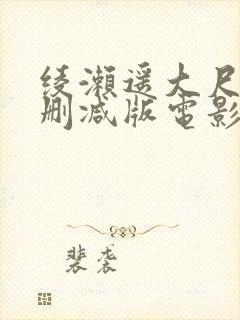 绫瀬遥大尺
删减版電影
裴袭